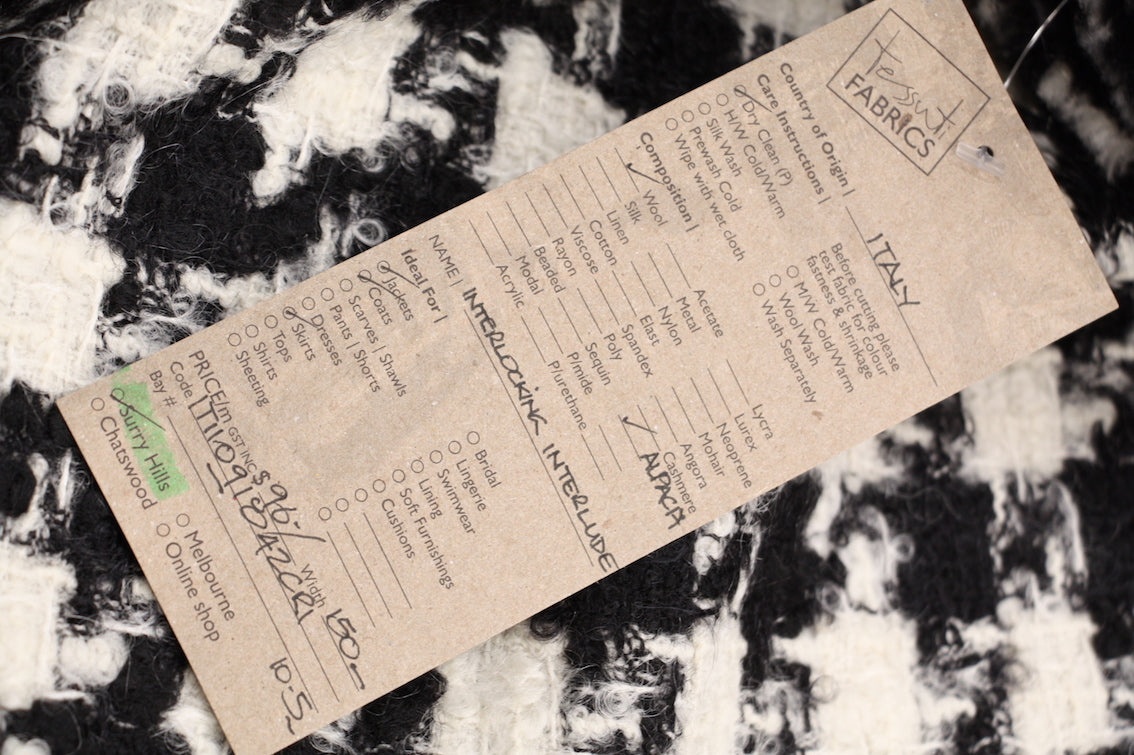 Tessuti
FABRICS
Country of Origin | ITALY
Care Instructions |
Dry Clean (P)
H/W Cold/Warm
Silk Wash
Prewash Cold
Wipe with wet cloth
Before cutting please
test fabric for colour
fastness & shrinkage
M/W Cold/Warm
Wool Wash
Wash Separately
Composition |
✓ Wool
Silk
Linen
Cotton
Viscose
Rayon
Beaded
Modal
Acrylic
Acetate
Metal
Nylon
Elast
Spandex
Poly
Sequin
P/mide
P/urethane
Lycra
Lurex
Neoprene
Mohair
Angora
Cashmere
✓ ALPACA
NAME | INTERLOCKING INTERLUDE
Ideal For |
Jackets
Coats
Scarves | Shawls
Pants | Shorts
Dresses
Skirts
Tops
Shirts
Sheeting
Bridal
Lingerie
Swimwear
Lining
Soft Furnishings
Cushions
PRICE/m GST INC $96/ Width 150
Code
Bay # 10.5
Surry Hills
Chatswood
Melbourne
Online shop